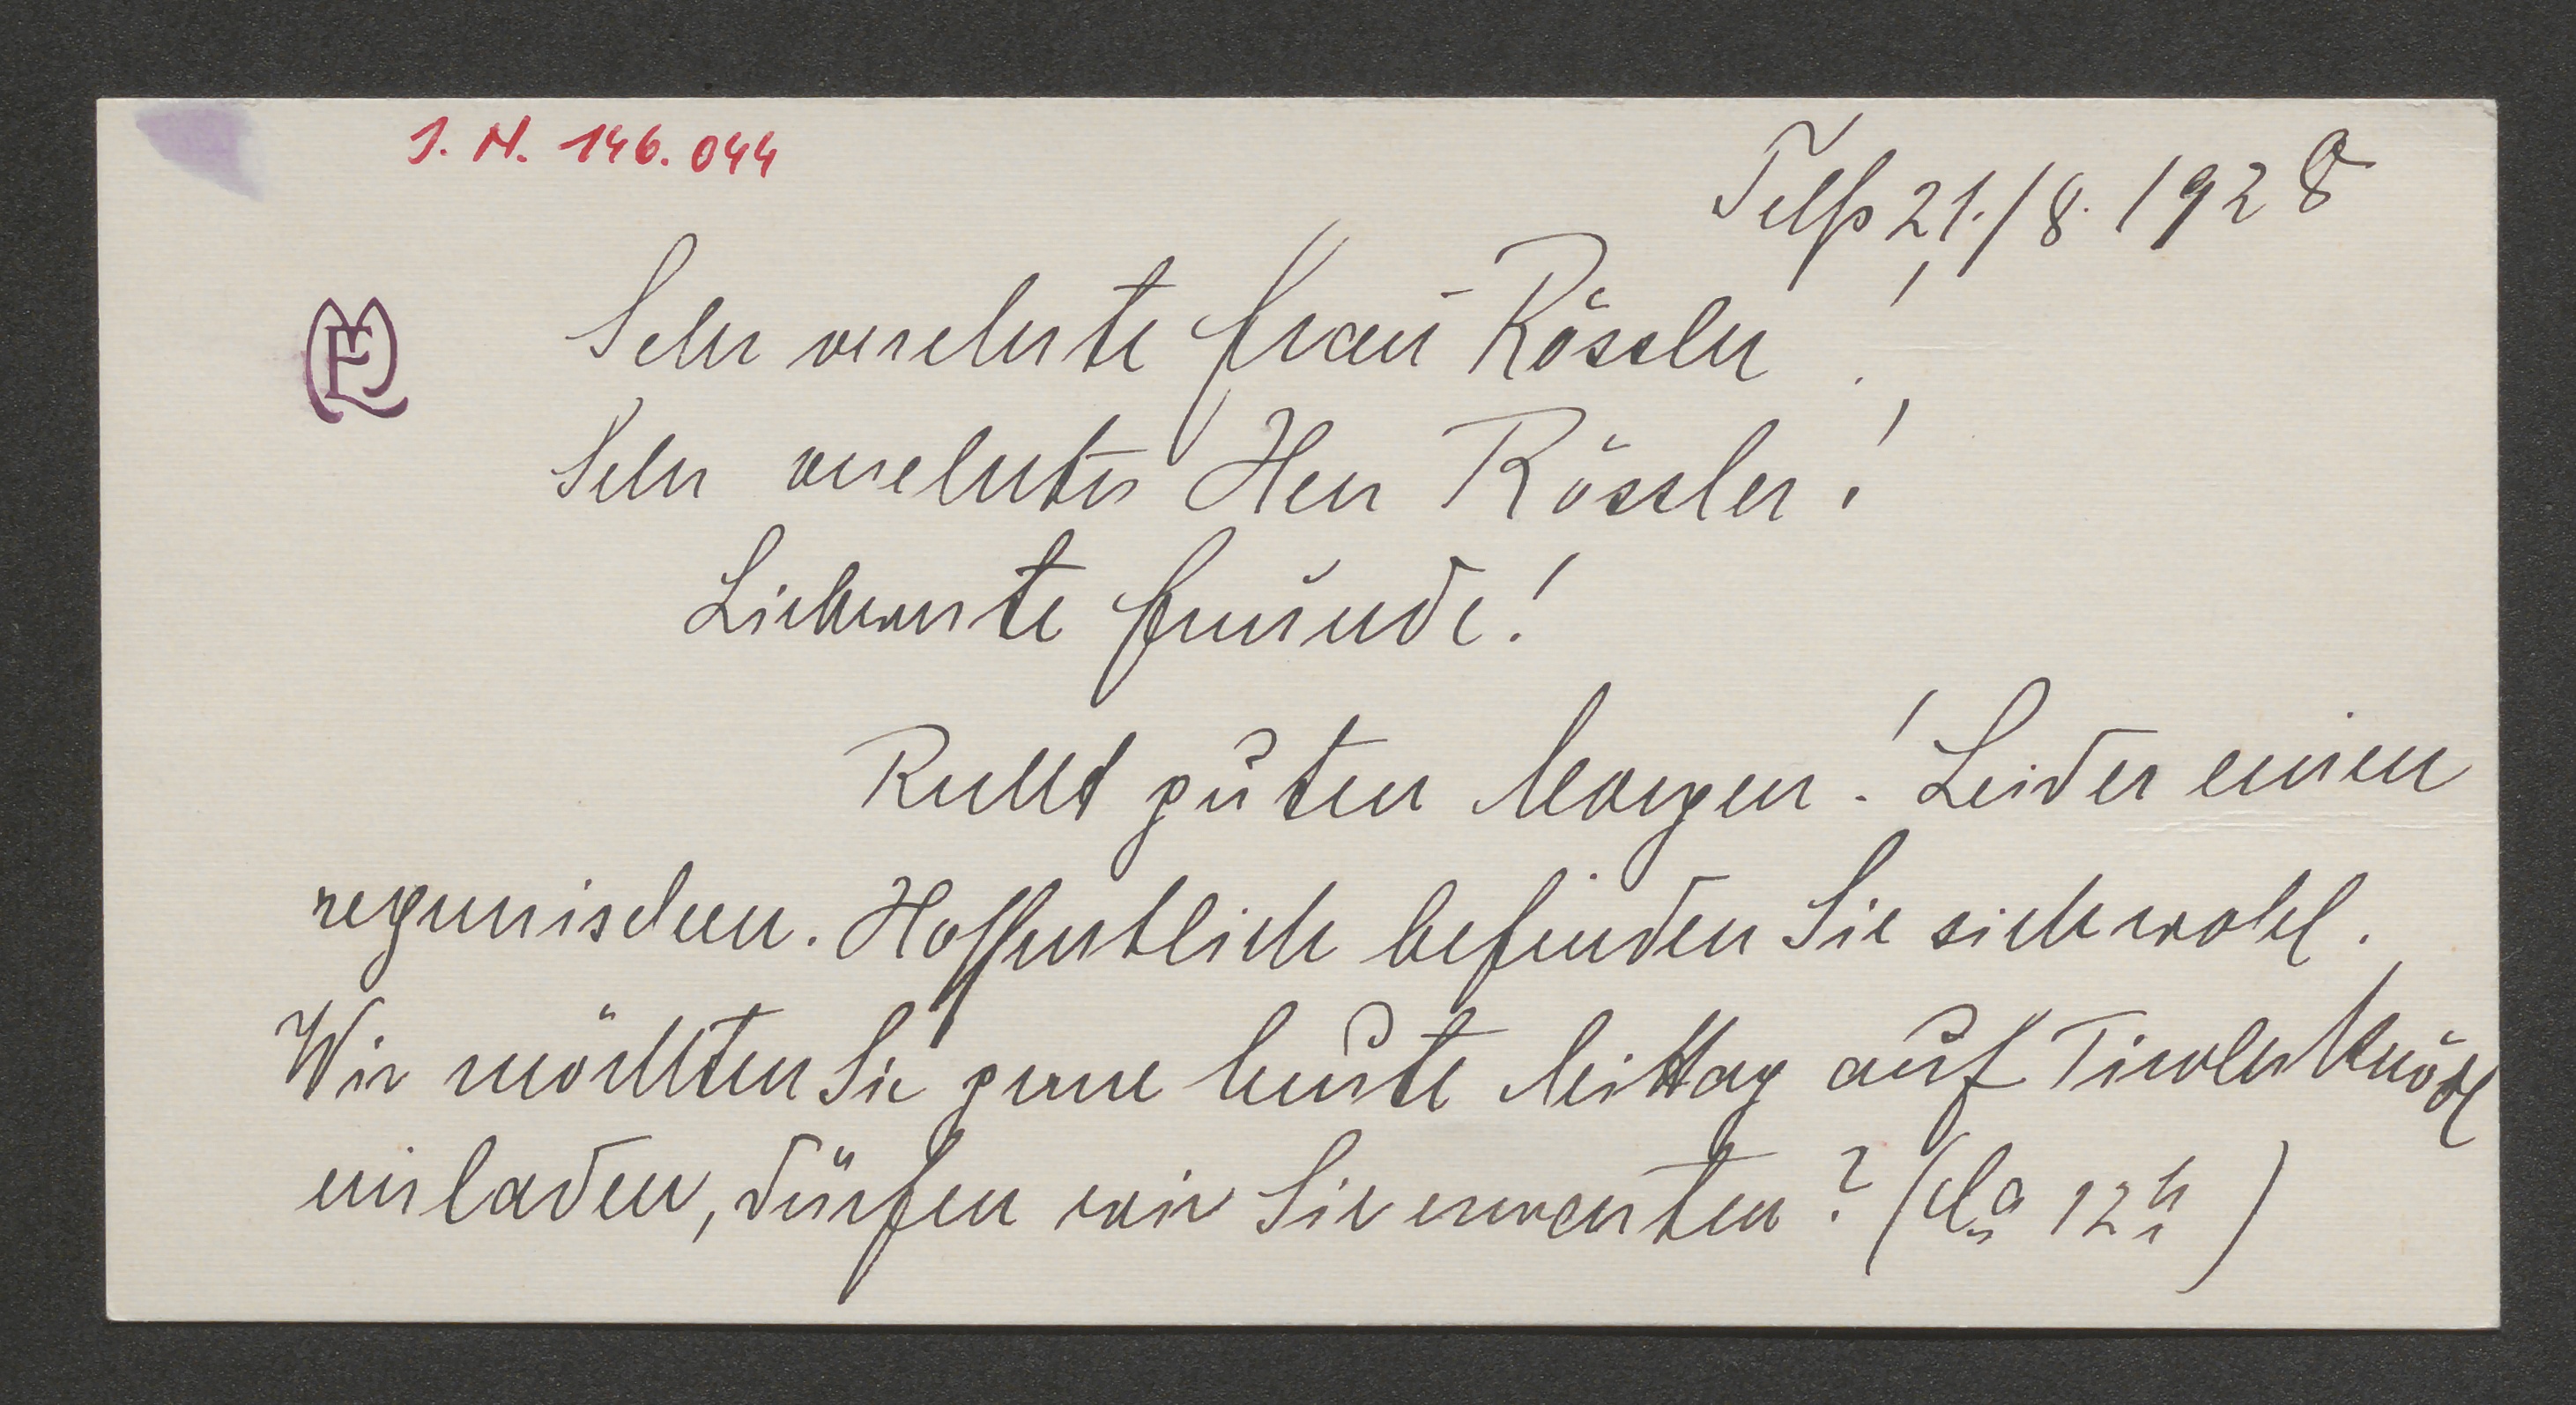 J. N. 146.044
Telfs 21./8. 1928
Sehr verehrte Frau Rössler!
Sehr verehrter Herr Rössler!
Liebwerte Freunde!
Recht guten Morgen! Leider einen
regnerischen. Hoffentlich befinden Sie sich wohl.
Wir möchten Sie gerne heute Mittag auf Tiroler Knödl
einladen, dürfen wir Sie erwarten? (ca 12h)